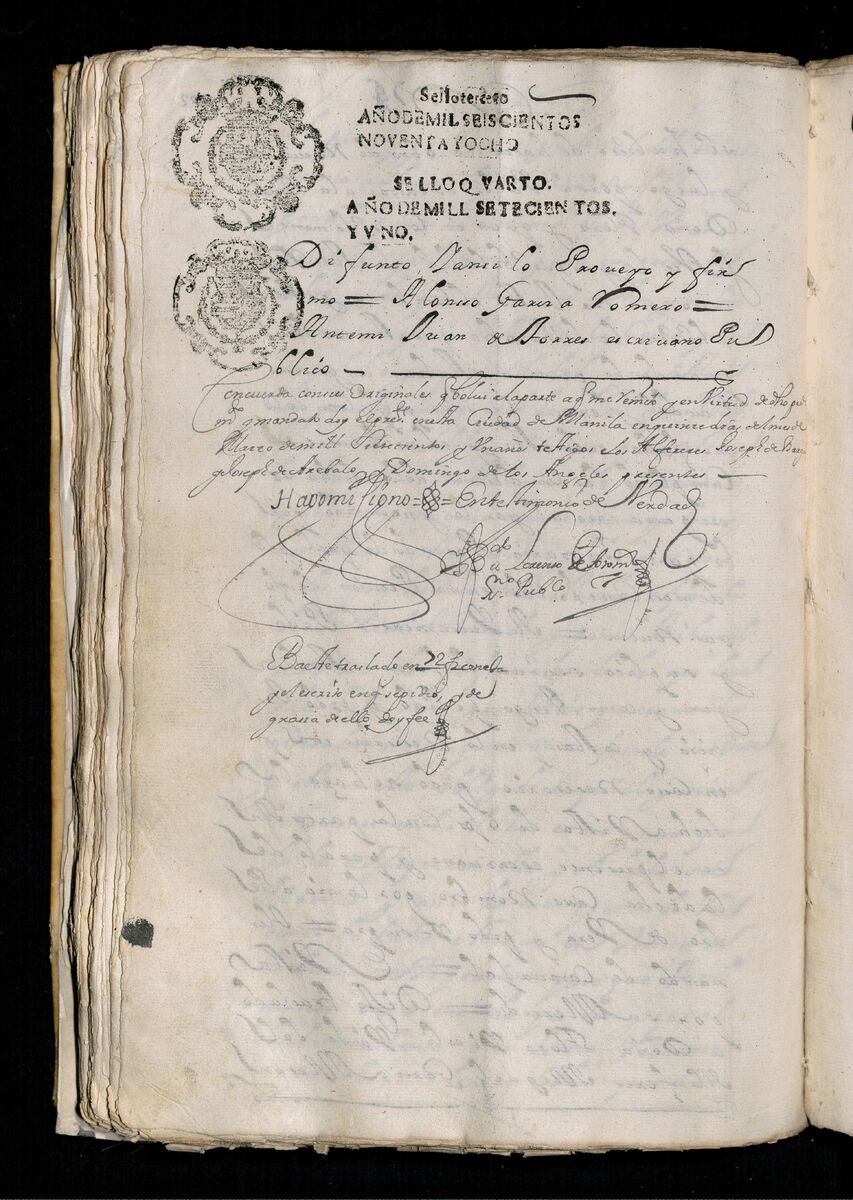 Sello tercero
AÑO DE MIL SEISCIENTOS
NOVENTA Y OCHO
SELLO QVARTO.
AÑO DE MILL SETECIENTOS.
Y VNO.
Difunto Yansi lo Proveyo y fir
mo = Alonso Garcia Romero =
Antemi Juan de Torres escrivano Pu
blico
concuerda con sus Originales q bolui a la parte a q me Remito y en Virtud de dho
y mandato doy el pres.te en esta Ciudad de Manila en quince dias del mes de
Marzo de mill Setecientos y Un años testigos los Alferes Joseph de
Joseph de Arebalo y Domingo de los Angeles presentes
Hago mi signo = = En testimonio de Verdad
Lorenso
no Pubco
Ba este traslado en 22 fx con esta
y el escrito en q se pidio y de
gracia de ello doy fee